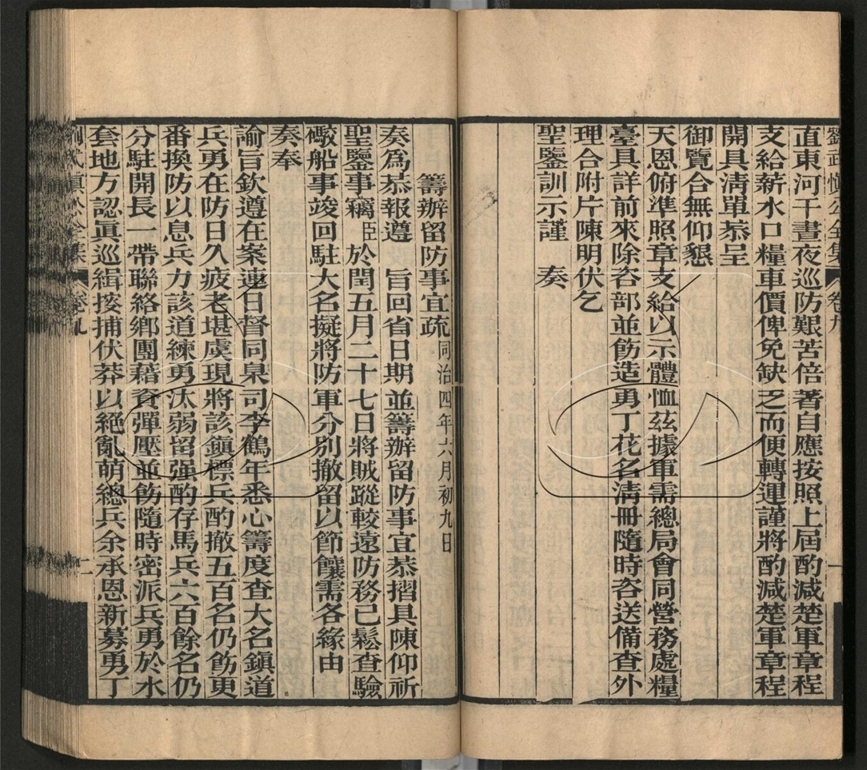 劉武愼公全集 卷九 一
直東河干晝夜巡防艱苦倍著自應按照上屆酌減楚軍章程
支給薪水口糧車價俾免缺乏而便轉運謹將酌減楚軍章程
開具清單恭呈
御覽合無仰懇
天恩俯準照章支給以示體恤茲據軍需總局會同營務處糧
臺具詳前來除咨部並飭造勇丁花名清冊隨時咨送備查外
理合附片陳明伏乞
聖鑒訓示謹 奏
籌辦留防事宜疏 同治四年六月初九日
奏爲恭報遵 旨回省日期並籌辦留防事宜恭摺具陳仰祈
聖鑒事竊臣於閏五月二十七日將賊蹤較遠防務已鬆查驗
礮船事竣回駐大名擬將防軍分別撤留以節饟需各緣由
奏奉
諭旨欽遵在案連日督同臬司李鶴年悉心籌度查大名鎮道
兵勇在防日久疲老堪虞現將該鎮標兵酌撤五百名仍飭更
番換防以息兵力該道練勇汰弱留强酌存馬兵六百餘名仍
分駐開長一帶聯絡鄉團藉資彈壓並飭隨時密派兵勇於水
套地方認眞巡緝搜捕伏莽以絶亂萌總兵余承恩新募勇丁
劉武愼公全集 卷九 二